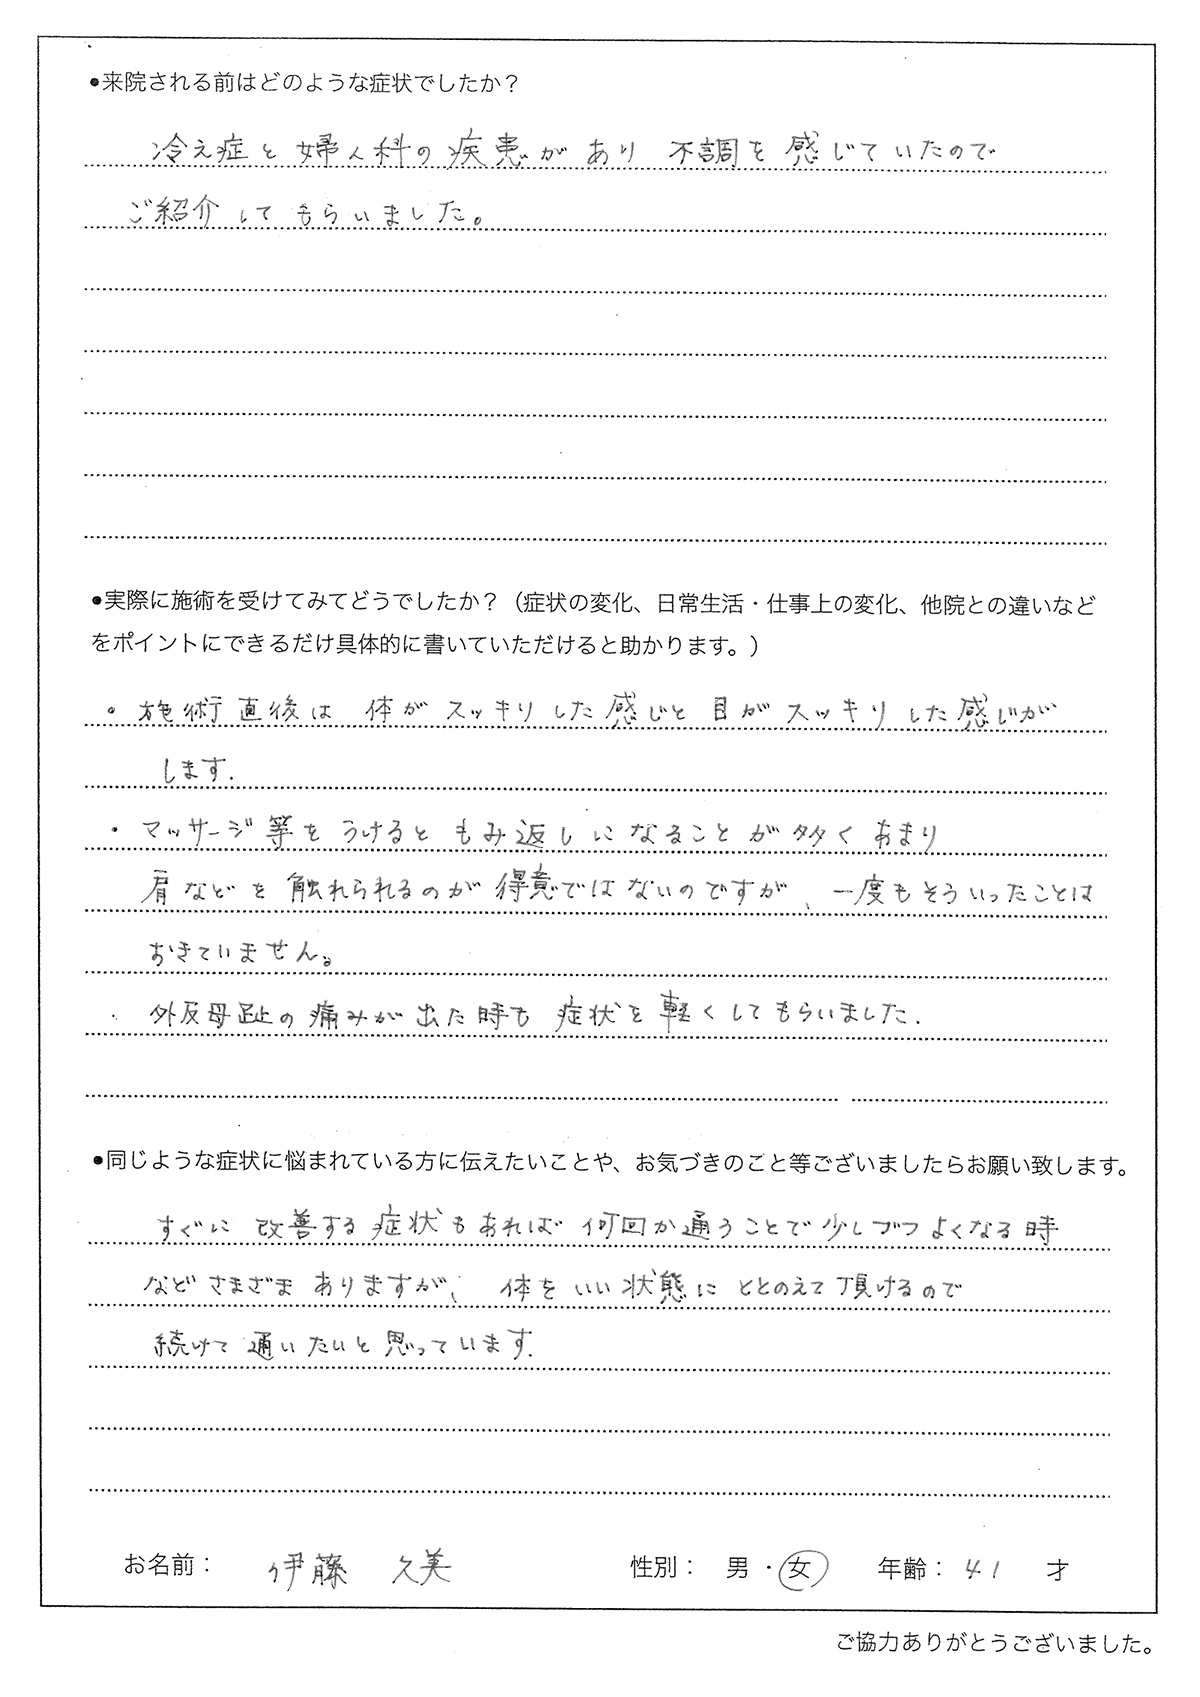 ●来院される前はどのような症状でしたか？
冷え症と婦人科の疾患があり 不調を感じていたので
ご紹介してもらいました。
●実際に施術を受けてみてどうでしたか？（症状の変化、日常生活・仕事上の変化、他院との違いなど
をポイントにできるだけ具体的に書いていただけると助かります。）
・施術直後は 体がスッキリした感じと目がスッキリした感じが
します.
・マッサージ等をうけるともみ返しになることが多く あまり
肩などを触れられるのが得意ではないのですが、一度もそういったことは
おきていません。
・外反母趾の痛みが出た時も 症状を軽くしてもらいました.
●同じような症状に悩まれている方に伝えたいことや、お気づきのごと等ございましたらお願い致します。
すぐに改善する症状もあれば 何回か通うことで少しづつよくなる時
などさまざまありますが、 体をいい状態にととのえて頂けるので
続けて通いたいと思っています.
お名前： 伊藤 久美 性別： 男・女 年齢：41 才
ご協力ありがとうございました。